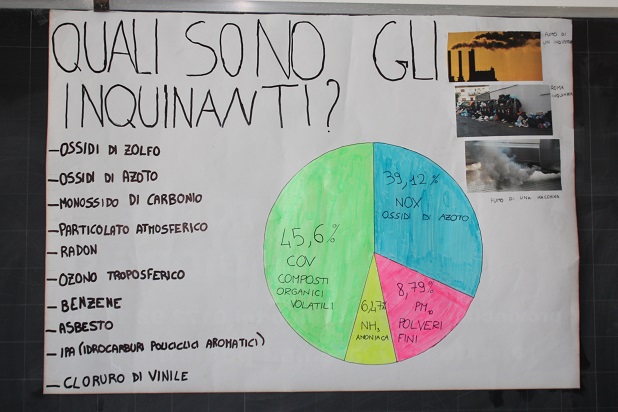 QUALI SONO GLI
INQUINANTI?
- OSSIDI DI ZOLFO
- OSSIDI DI AZOTO
- MONOSSIDO DI CARBONIO
- PARTICOLATO ATMOSFERICO
- RADON
- OZONO TROPOSFERICO
- BENZENE
- ASBESTO
- IPA (IDROCARBURI POLICICLICI AROMATICI)
- CLORURO DI VINILE
39,12%
NOX
OSSIDI DI AZOTO
45,6%
COV
COMPOSTI
ORGANICI
VOLATILI
6,47%
NH3
AMONIACA
8,79%
PM
POLVERI
FINI
FUMO DI
ROMA
FUMO DI UNA